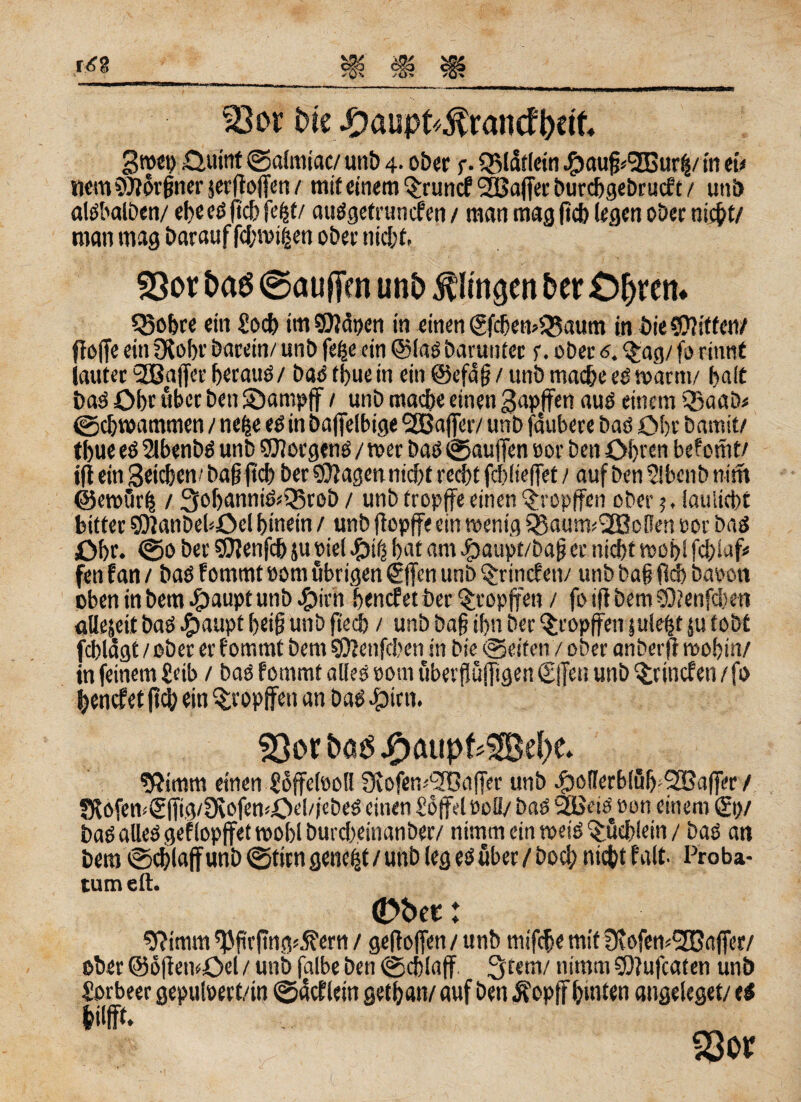 168
Vor die Haupt-Kranckheit.
Zwey Quint Salmiac/ und 4. oder 5. Blätlein Hauß-Wurtz/ in ei-
nem Mörßner zerstossen / mit einem Trunck Wasser durchgedruckt / und
alsbalden/ ehe es sich setzt/ ausgetruncken / man mag sich legen oder nicht/
man mag darauf schwitzen oder nicht.
Vor das Saussen und Klingen der Ohren.
Bohre ein Loch im Mäyen in einen Eschen-Baum in die Mitten/
stosse ein Rohr darein/ und setze ein Glas darunter 5. oder 6. Tag/ so rinnt
lauter Wasser heraus/ das thue in ein Gefäß / und mache es warm/ halt
das Ohr über den Dampff / und mache einen Zapffen aus einem Baad-
Schwammen / netze es in dasselbige Wasser/ und säubere das Ohr damit/
thue es Abends und Morgens / wer das Saussen vor den Ohren bekomt/
ist ein Zeichen/ daß sich der Magen nicht recht schliesset / auf den Abend nim
Gewürtz / Johannis-Brod / und tropffe einen Tropffen oder 3. laulicht
bitter Mandel-Oel hinein / und stopffe ein wenig Baum-Wollen vor das
Ohr. So der Mensch zu viel Hitz hat am Haupt/daß er nicht wohl schlaf-
fen kan / das kommt vom übrigen Essen und Trincken/ und daß sich davon
oben in dem Haupt und Hirn hencket der Tropffen / so ist dem Menschen
allezeit das Haupt heiß und siech / und daß ihn der Tropffen zulezt zu todt
schlägt / oder er kommt dem Menschen in die Seiten / oder anderst wohin/
in seinem Leib / das kommt alles vom überflüssigen Essen und Trincken / so
hencket sich ein Tropffen an das Hirn.
Vor das Haupt-Wehe.
Nimm einen Löffelvoll Rosen-Wasser und Hollerblüh-Wasser /
Rosen-Essig/Rosen-Oel/jedes einen Löffel voll/ das Weis von einem Ey/
das alles geklopffet wohl durcheinander/ nimm ein weis Tüchlein / das an
dem Schlaff und Stirn genetzt / und leg es über / doch nicht kalt. Proba-
tum est.
Oder:
Nimm Pfirsing-Kern / gestossen / und mische mit Rosen-Wasser/
oder Gösten-Oel / und salbe den Schlaff. Item/ nimm Mufcaten und
Lorbeer gepulvert/in Säcklein gethan/ auf den Kopff hinten angeleget/ es
hilfft.
Vor